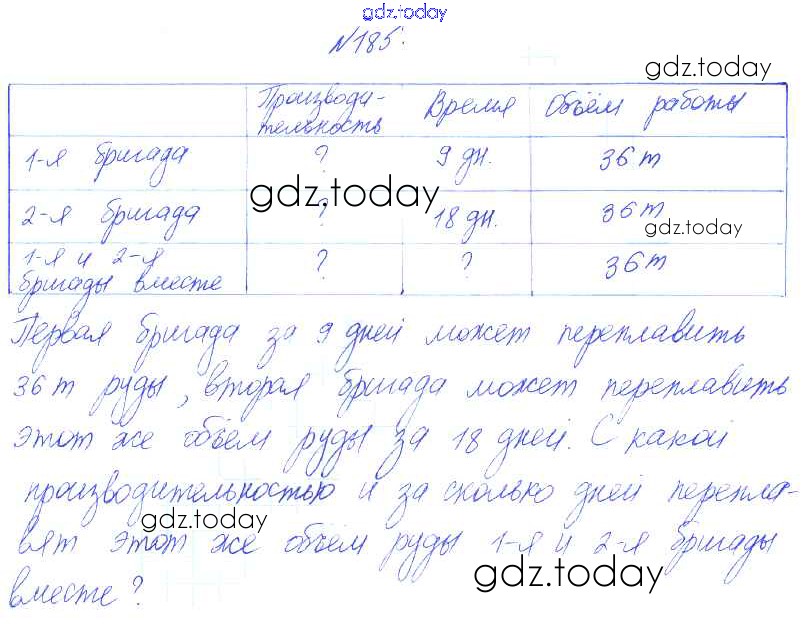 gdz.today
№185.
gdz.today
Производи- Время Объём работы
тельность
1-я бригада ? 9 дн. 36 т
gdz.today
2-я бригада ? 18 дн. 36 т
gdz.today
1-я и 2-я ? ? 36 т
бригады вместе
Первая бригада за 9 дней может переплавить
36 т руды, вторая бригада может переплавить
этот же объём руды за 18 дней. С какой
производительностью и за сколько дней перепла-
gdz.today
вят этот же объём руды 1-я и 2-я бригады
gdz.today
вместе?